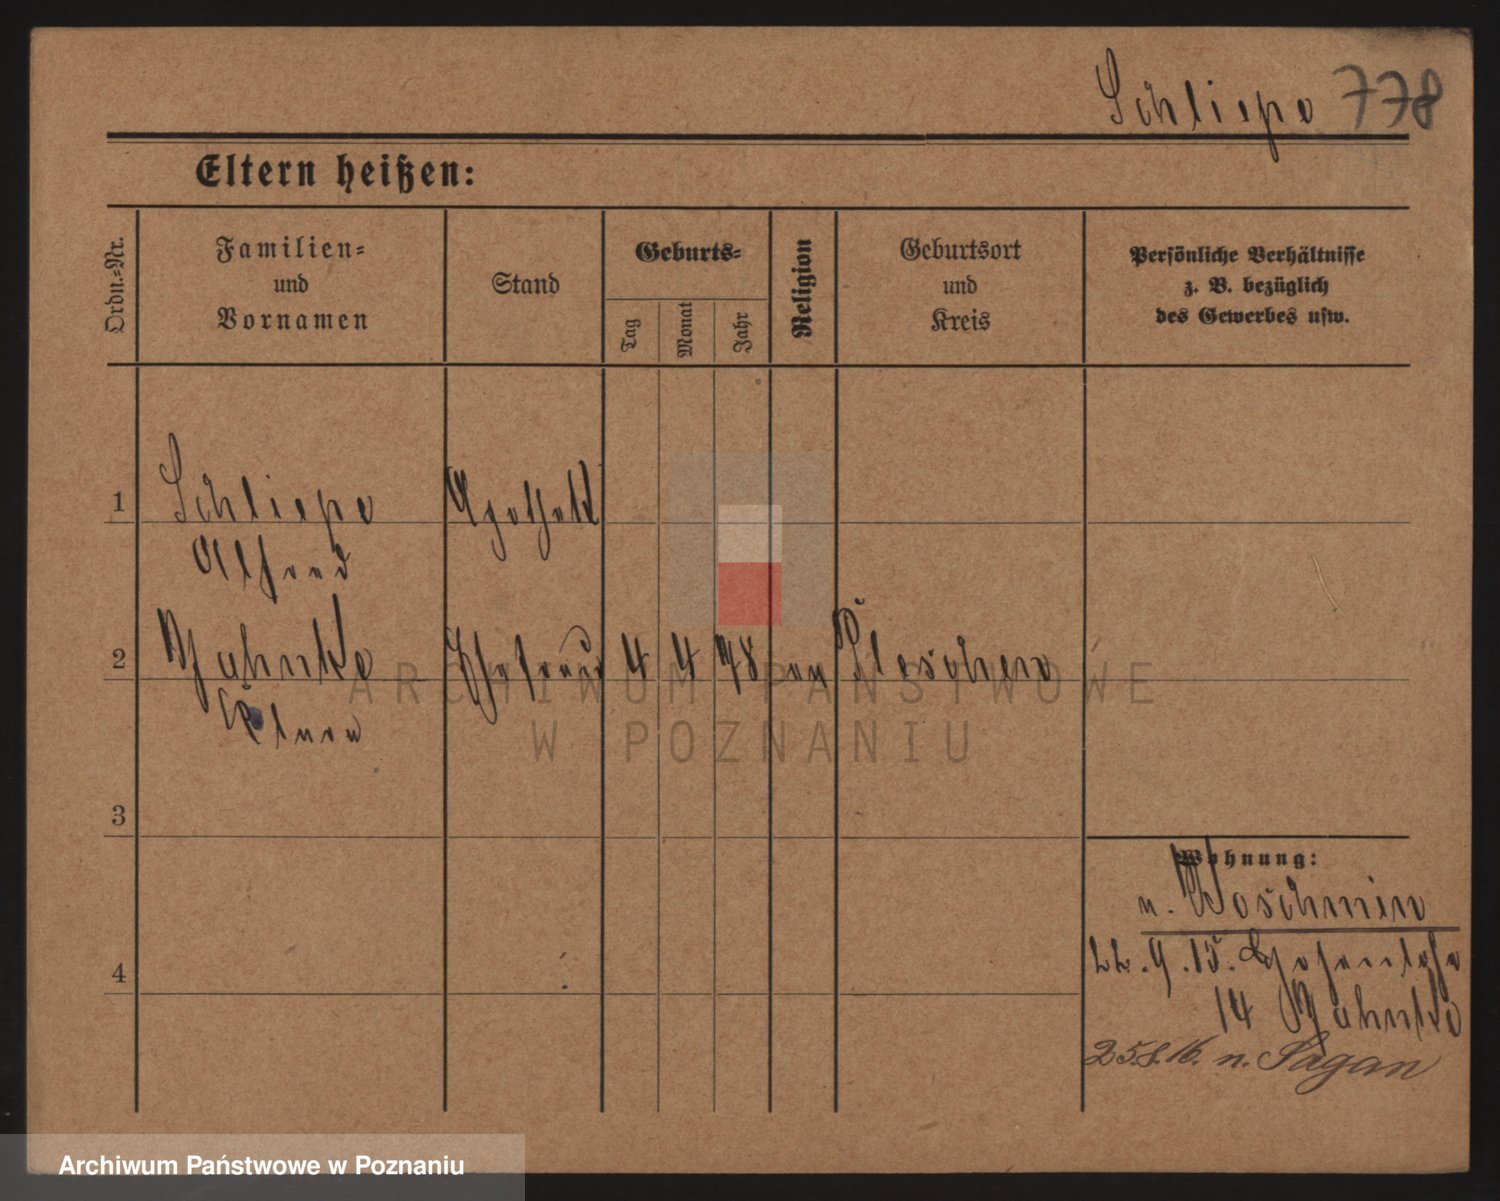 Schliepe 778
Eltern heißen:
Ordn.=Nr.
Familien=
und
Vornamen
Stand
Geburts=
Tag
Monat
Jahr
Religion
Geburtsort
und
Kreis
Persönliche Verhältnisse
z. B. bezüglich
des Gewerbes usw.
1 Schliepe Apothek
Alfred
2 Jahnke Ehefrau 4 4 78 Pleschen
3
4
Wohnung:
n. Woschmin
22.9.15. Hohenlohe
14 Jahnke
25.8.16. n. Sagan
ARCHIWUM PAŃSTWOWE
W POZNANIU
Archiwum Państwowe w Poznaniu